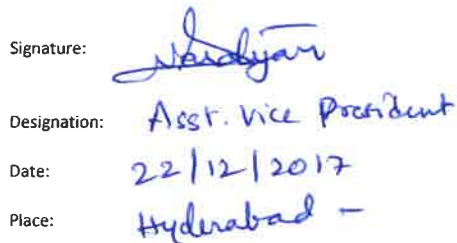 Signature: Narayan
Designation: Asst. Vice President
Date: 22/12/2017
Place: Hyderabad -